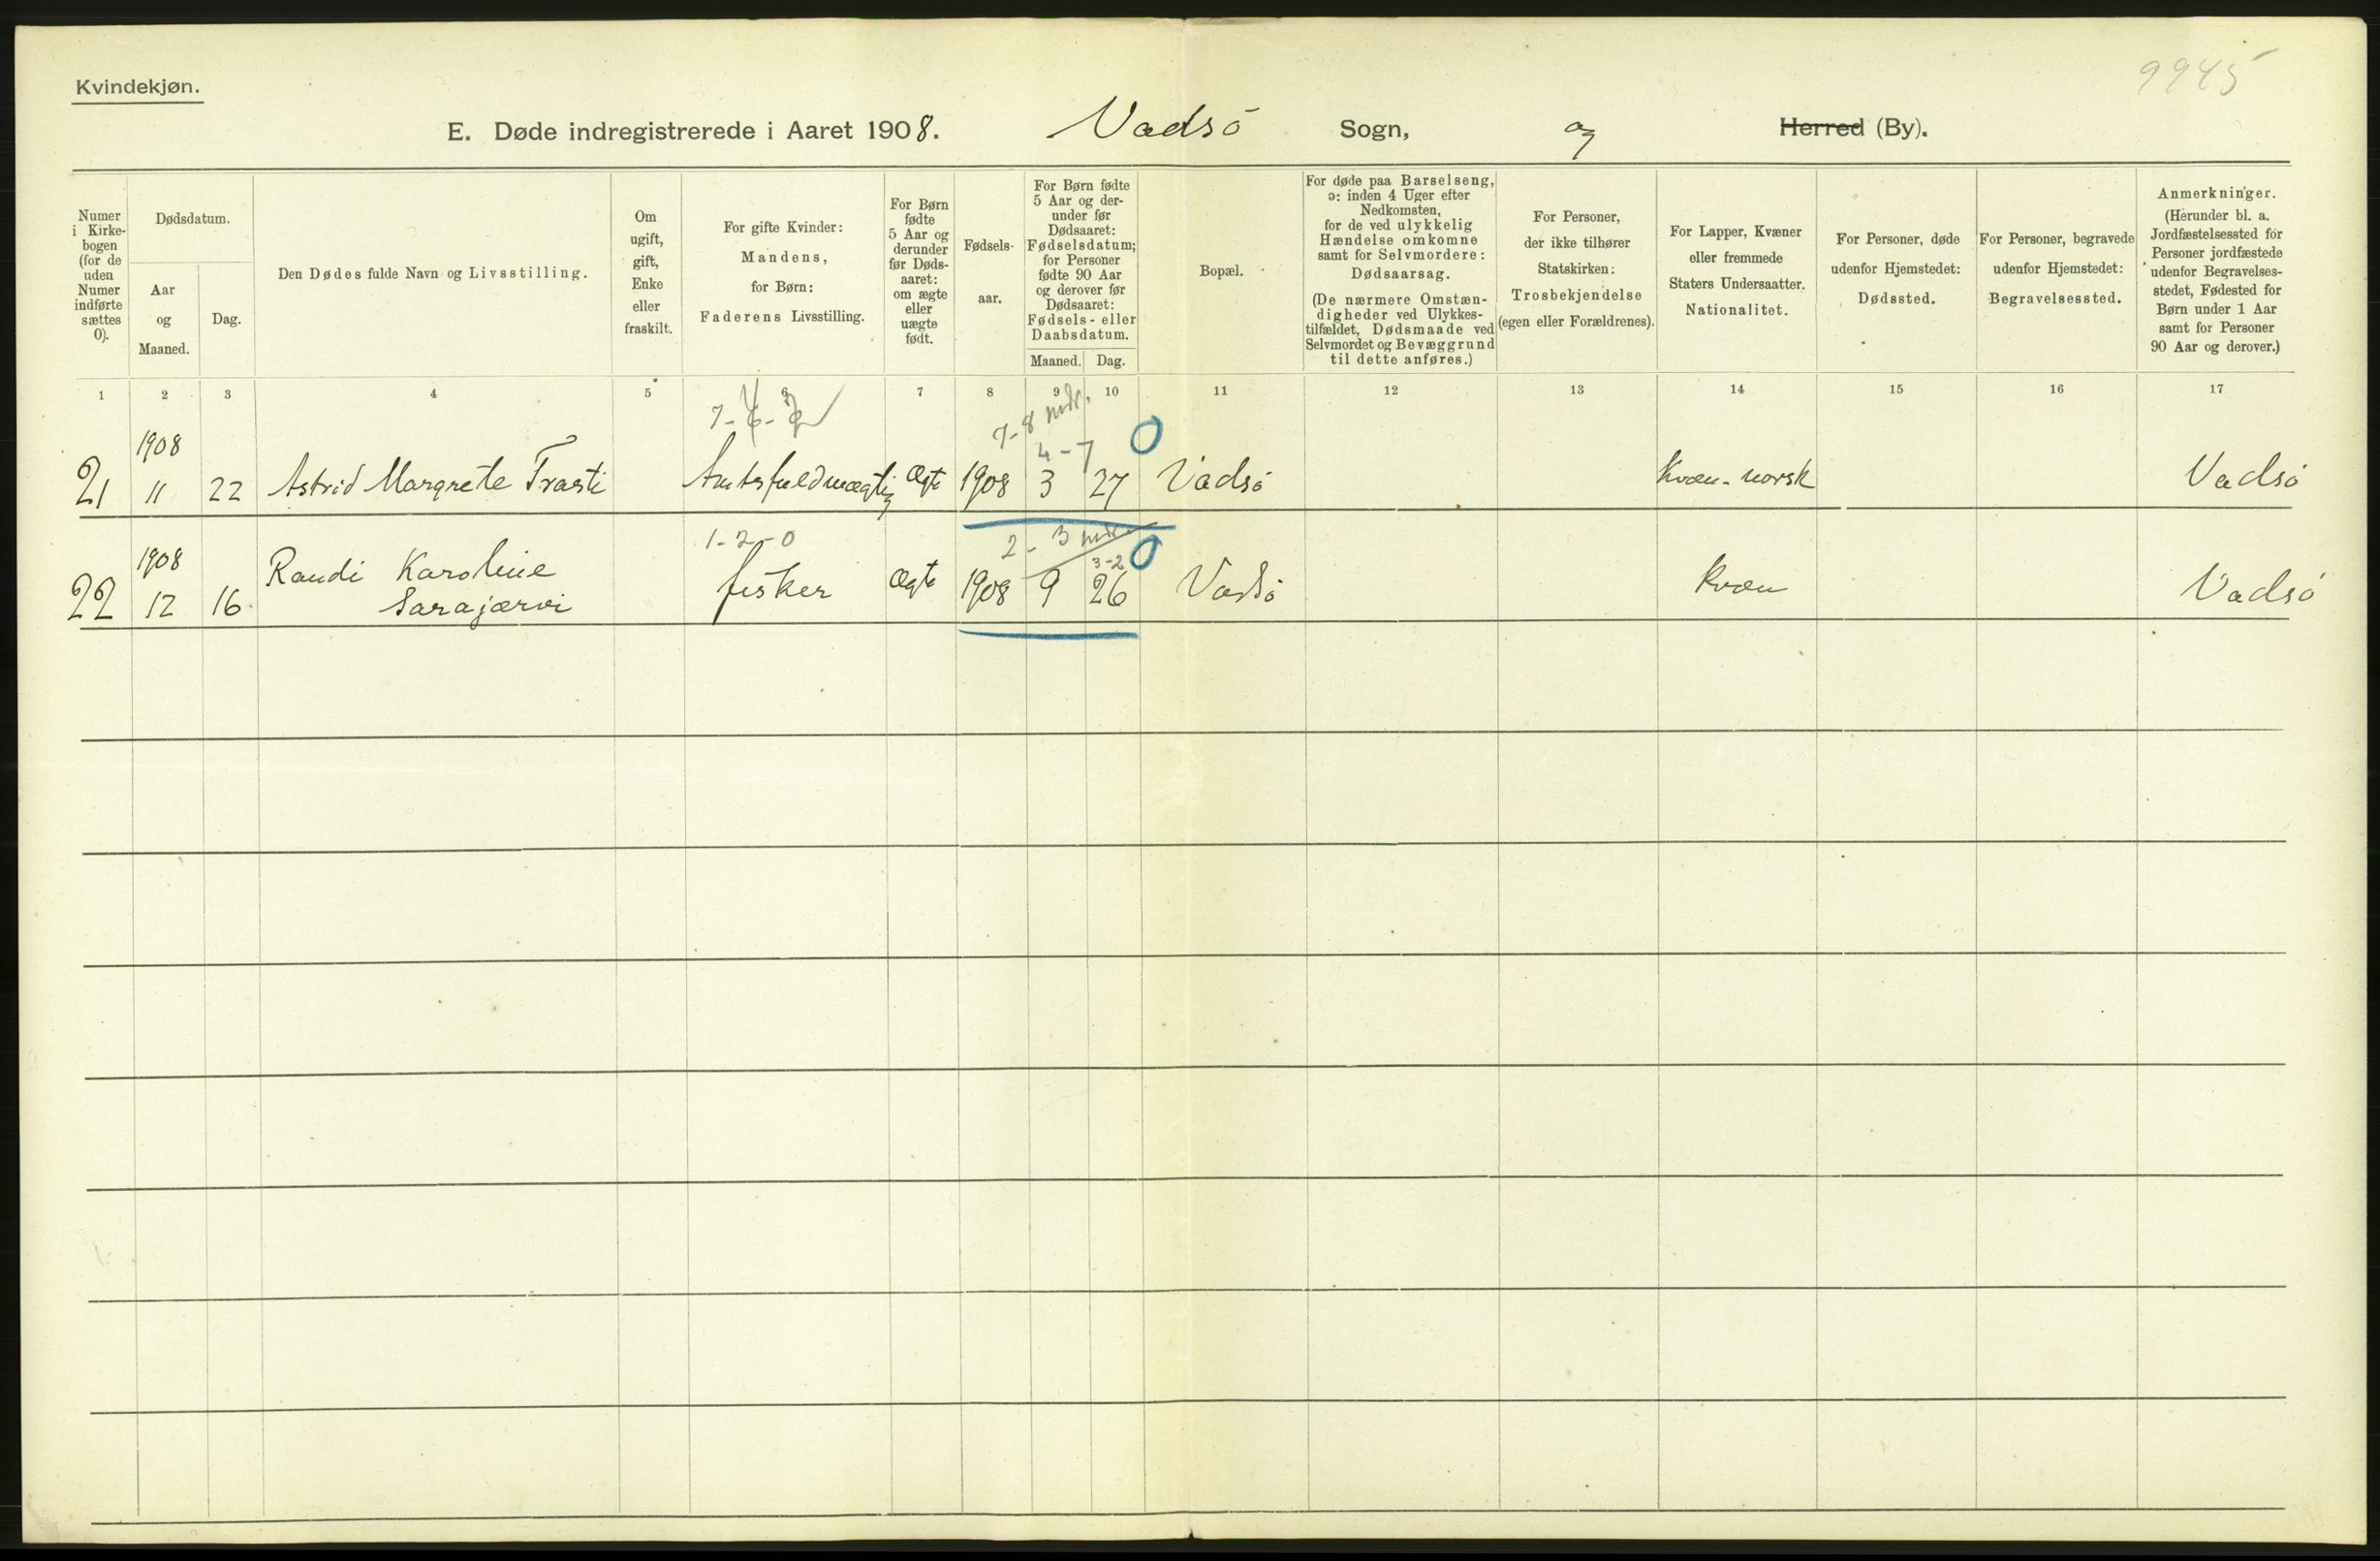 Kvindekjøn.
9945
E. Døde indregistrerede i Aaret 1908. Vadsö Sogn, og Herred (By).
Numer i Kirkebogen (for de uden Numer indførte sættes 0).
Dødsdatum.
Aar og Maaned.
Dag.
Den Dødes fulde Navn og Livsstilling.
Om ugift, gift, Enke eller fraskilt.
For gifte Kvinder: Mandens, for Børn: Faderens Livsstilling.
For Børn fødte 5 Aar og derunder før Dødsaaret: om ægte eller uægte født.
Fødselsaar.
For Børn fødte 5 Aar og derunder før Dødsaaret: Fødselsdatum; for Personer fødte 90 Aar og derover før Dødsaaret: Fødsels- eller Daabsdatum.
Maaned. Dag.
Bopæl.
For døde paa Barselseng, ɔ: inden 4 Uger efter Nedkomsten, for de ved ulykkelig Hændelse omkomne samt for Selvmordere: Dødsaarsag. (De nærmere Omstændigheder ved Ulykkestilfældet, Dødsmaade ved Selvmordet og Bevæggrund til dette anføres.)
For Personer, der ikke tilhører Statskirken: Trosbekjendelse (egen eller Forældrenes).
For Lapper, Kvæner eller fremmede Staters Undersaatter. Nationalitet.
For Personer, døde udenfor Hjemstedet: Dødssted.
For Personer, begravede udenfor Hjemstedet: Begravelsessted.
Anmerkninger. (Herunder bl. a. Jordfæstelsessted for Personer jordfæstede udenfor Begravelsesstedet, Fødested for Børn under 1 Aar samt for Personer 90 Aar og derover.)
1 2 3 4 5 6 7 8 9 10 11 12 13 14 15 16 17
7-8 mdr. 0
1908 4-7
21 11 22 Astrid Margrete Trasti Amtsfuldmægtig Ægte 1908 3 27 Vadsö Kvæn-norsk Vadsö
1-2-0 2-3 mdr. 0
1908 Randi Karoline 3-2
22 12 16 Sarajærvi fisker Ægte 1908 9 26 Vadsö Kvæn Vadsö